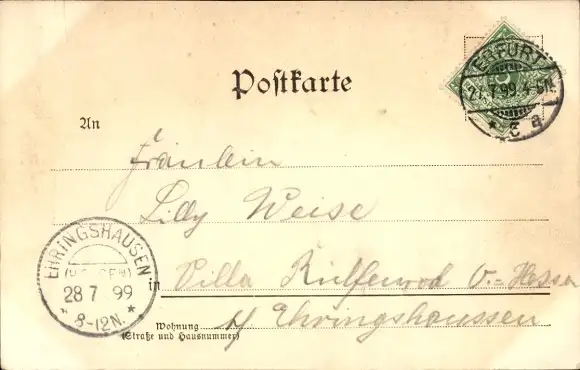 Postkarte
ERFURT
27.7.99.4-5N.
* 5 a
An
Fräulein
Lilly Weise
EHRINGSHAUSEN
28 7 99
8-12N.
in Villa v.- Hessen
b/ Ehringshaussen
Wohnung
(Straße und Hausnummer)